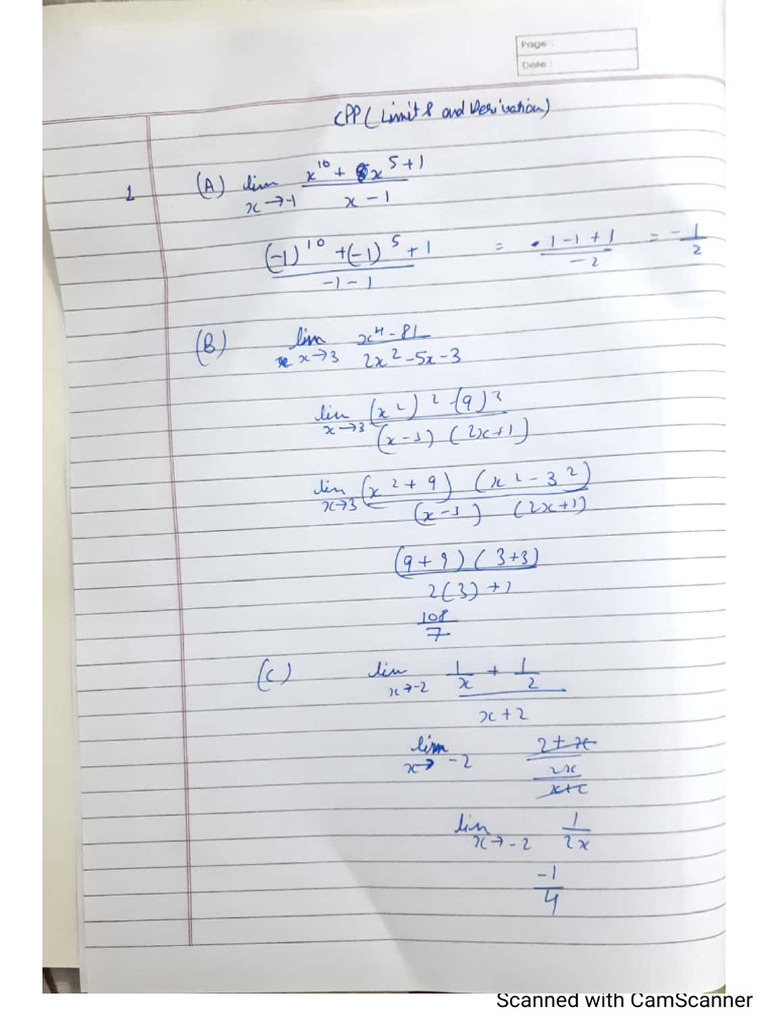 Page :
Date :
CPP (Limits and Derivation)
1 (A) lim x→-1 (x^10 + x^5 + 1)/(x - 1)
((-1)^10 + (-1)^5 + 1)/(-1 - 1) = (1 - 1 + 1)/(-2) = -1/2
(B) lim x→3 (x^4 - 81)/(2x^2 - 5x - 3)
lim x→3 ((x^2)^2 - (9)^2)/((x-3) (2x+1))
lim x→3 ((x^2 + 9) (x^2 - 3^2))/((x-3) (2x+1))
((9+9) (3+3))/(2(3) + 1)
108/7
(C) lim x→-2 (1/x + 1/2)/(x+2)
lim x→-2 ((2+x)/(2x))/(x+2)
lim x→-2 1/(2x)
-1/4
Scanned with CamScanner